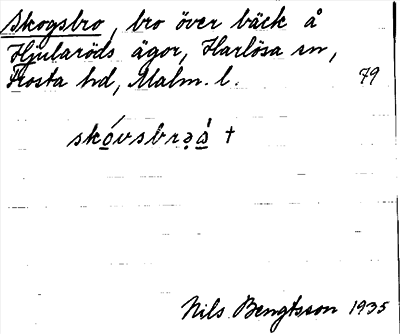 Skogsbro, bro över bäck å
Hjularöds ägor, Harlösa sn,
Frosta hd, Malm. l. 79
skóvsbrə̀a̍ †
Nils Bengtsson 1935